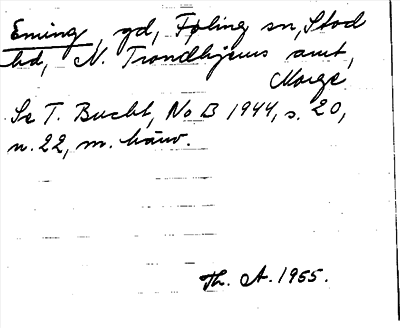 Eming, gd, Føling sn, Stod
hd, N. Trondhjems amt,
Norge
Se T. Bucht, No B 1944, s. 20,
n. 22, m. hänv.
Th. A. 1955.